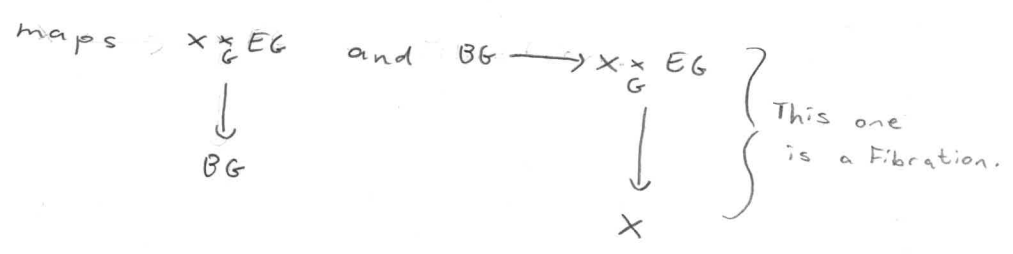 maps X ×_G EG and BG → X ×_G EG
↓ ↓
This one
is a Fibration.
BG
X